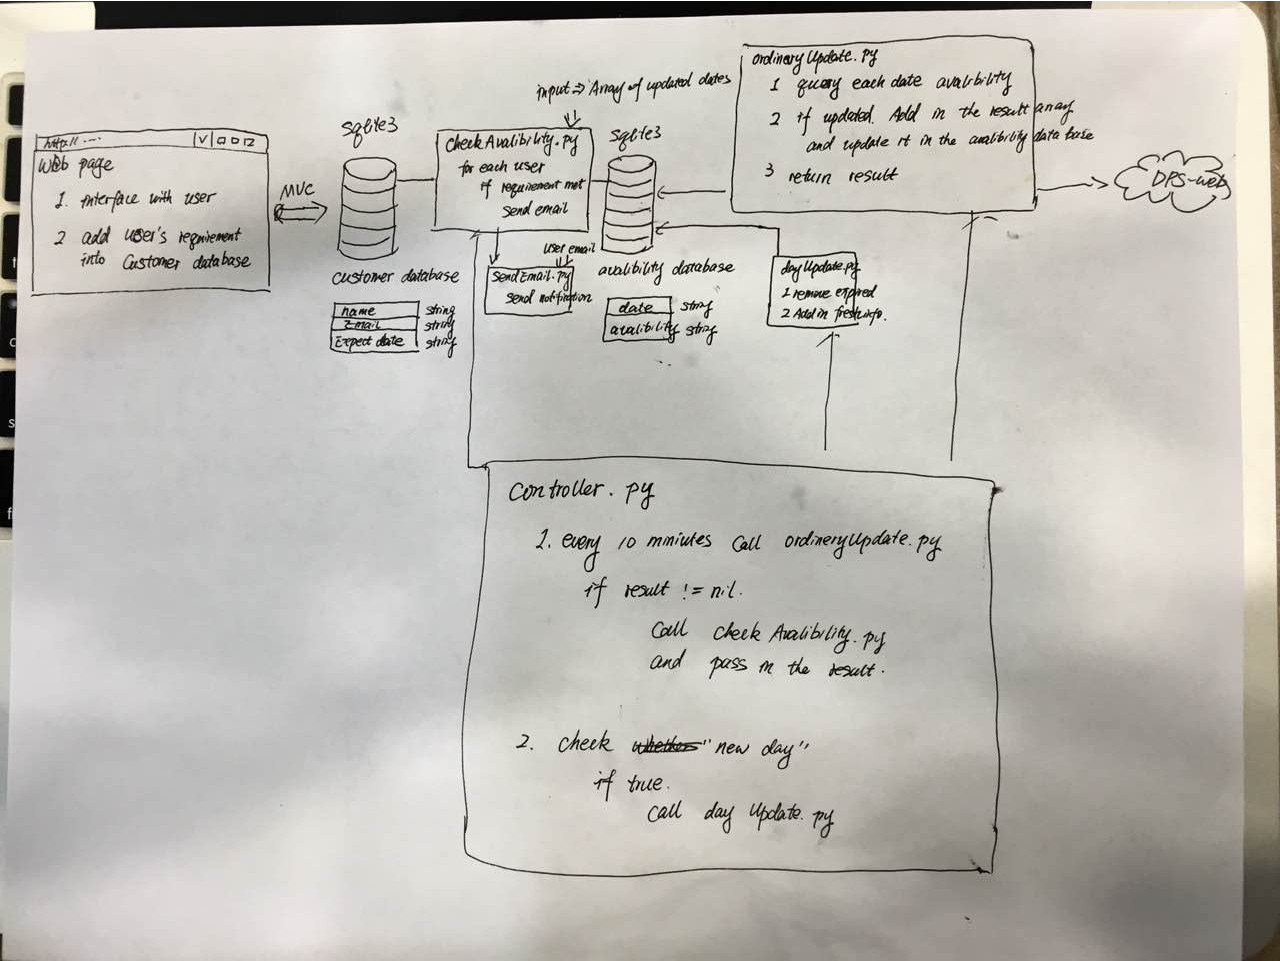 http://....
V
Web page
1. interface with user
2 add user's requirement
into Customer database
MVC
sqlite3
customer database
name string
Email string
Expect date string
input => Array of updated dates
checkAvalibility.py
for each user
if requirement met
send email
user email
SendEmail.py
send notification
sqlite3
avalibility database
date string
avalibility string
ordineryUpdate.py
1 query each date avalibility
2 if updated. Add in the result array
and update it in the avalibility data base
3 return result
DPS-web
dayUpdate.py
1 remove expired
2 Add in fresh info.
controller.py
1. every 10 mniutes call ordineryUpdate.py
if result != nil.
call check Avalibility.py
and pass in the result.
2. check "new day"
if true.
call day Update.py